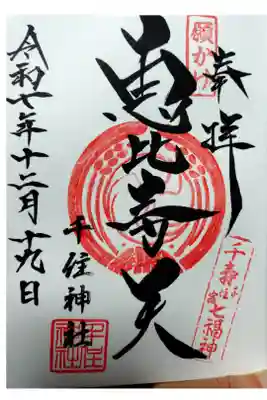 奉拝
願かけ
恵比寿天
千寿七福神
千住神社
千住神社
令和七年十二月十九日